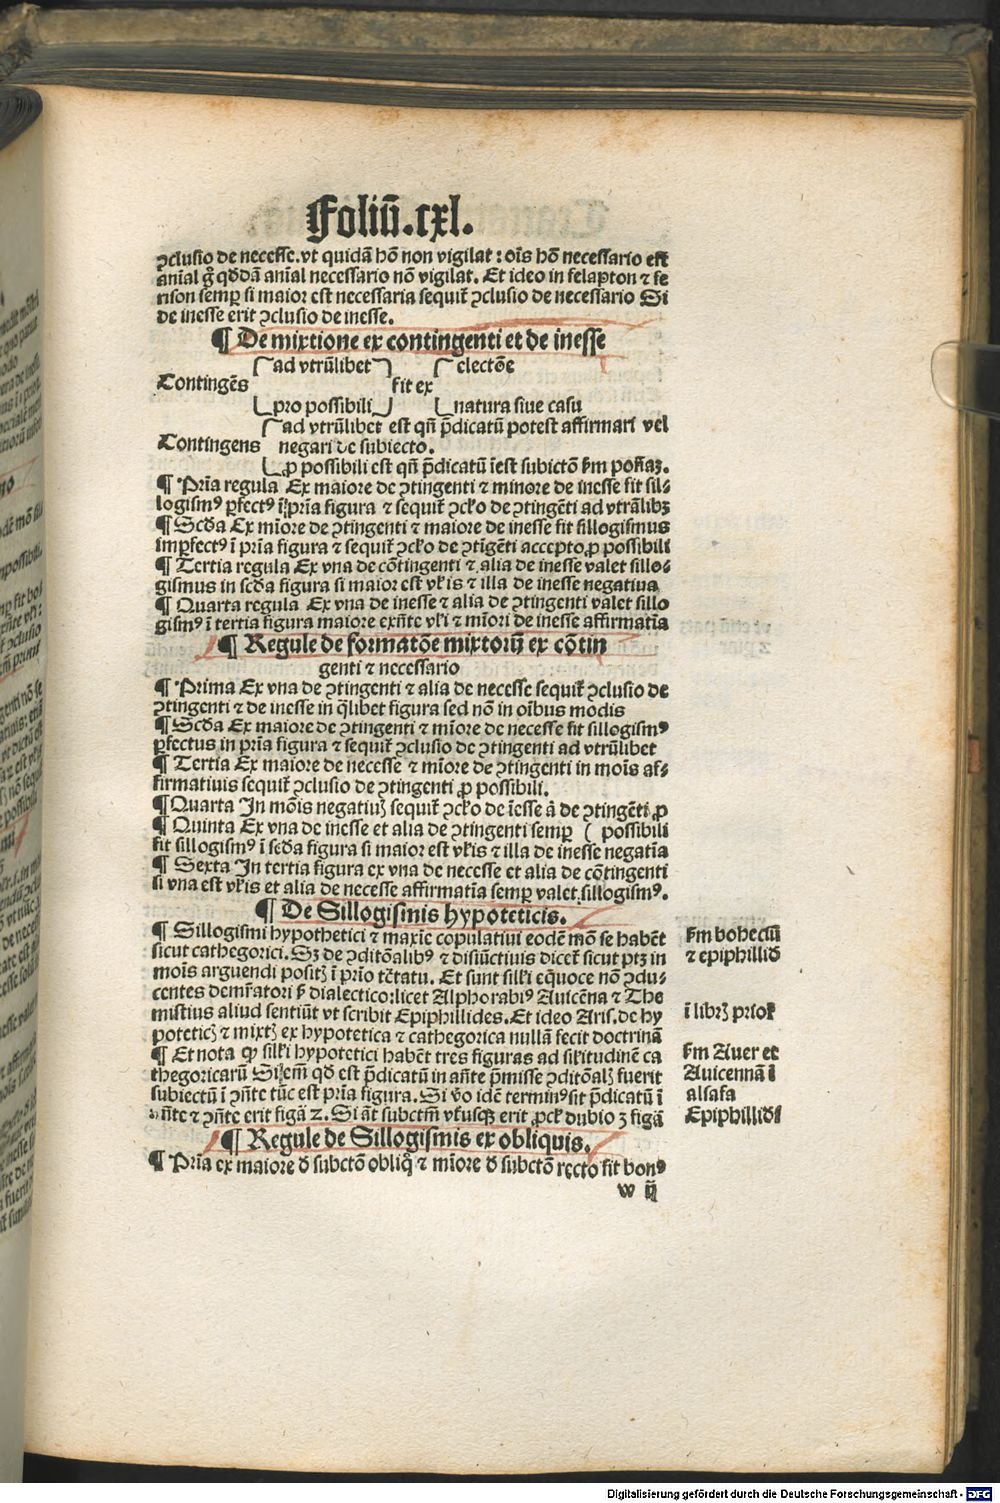 Foliū.cxl.
ꝯclusio de necesse.vt quidā hō non vigilat: oīs hō necessario est
anīal gͦ qd̄dā anīal necessario nō vigilat. Et ideo in felapton ⁊ fe
rison semꝑ si maior est necessaria sequit̄ ꝯclusio de necessario Si
de inesse erit ꝯclusio de inesse.
¶ De mixtione ex contingenti et de inesse
ad vtrūlibet electōe
Contingēs fit ex
pro possibili natura siue casu
ad vtrūlibet est qn̄ p̄dicatū potest affirmari vel
Contingens negari de subiecto.
ꝓ possibili est qn̄ p̄dicatū īest subictō
¶ Prīa regula Ex maiore de ꝯtingenti ⁊ minore de inesse fit sil⸗
logismꝰ ꝑfectꝰ ī prīa figura ⁊ sequit̄ ꝯcło de ꝯtingēti ad vtrālibꝫ
¶ Scd̄a Ex mīore de ꝯtingenti ⁊ maiore de inesse fit sillogismus
imꝑfectꝰ ī prīa figura ⁊ sequit̄ ꝯcło de ꝯtīgēti accepto ꝓ possibili
¶ Tertia regula Ex vna de cōtingenti ⁊ alia de inesse valet sillo⸗
gismus in scd̄a figura si maior est vłis ⁊ illa de inesse negatiua
¶ Quarta regula Ex vna de inesse ⁊ alia de ꝯtingenti valet sillo
gismꝰ ī tertia figura maiore exn̄te vłi ⁊ mīori de inesse affirmatīa
¶ Regule de formatōe mixtorū ex cōtin
genti ⁊ necessario
¶ Prima Ex vna de ꝯtingenti ⁊ alia de necesse sequit̄ ꝯclusio de
ꝯtingenti ⁊ de inesse in q̄libet figura sed nō in oībus modis
¶ Scd̄a Ex maiore de ꝯtingenti ⁊ mīore de necesse fit sillogismꝰ
ꝑfectus in prīa figura ⁊ sequit̄ ꝯclusio de ꝯtingenti ad vtrūlibet
¶ Tertia Ex maiore de necesse ⁊ mīore de ꝯtingenti in moīs af⸗
firmatiuis sequit̄ ꝯclusio de ꝯtingenti ꝓ possibili.
¶ Quarta In mōis negatiuꝫ sequit̄ ꝯcło de īesse ā de ꝯtingēti ꝓ
¶ Quinta Ex vna de inesse et alia de ꝯtingenti semꝑ ( possibili
fit sillogismꝰ ī scd̄a figura si maior est vłis ⁊ illa de inesse negatīa
¶ Sexta In tertia figura ex vna de necesse et alia de cōtingenti
si vna est vłis et alia de necesse affirmatīa semꝑ valet sillogismꝰ.
¶ De Sillogismis hypoteticis.
¶ Sillogismi hypothetici ⁊ maxīe copulatiui eodē mō se habēt
sicut cathegorici. Sꝫ de ꝯditōalibꝰ ⁊ disiūctiuis dicet̄ sicut ptꝫ in
moīs arguendi positꝫ ī prīo tc̄tatu. Et sunt silłi eq̄uoce nō ꝯdu⸗
centes demr̄atori ꝫ dialectico: licet Alphorabiꝰ Auicēna ⁊ The
mistius aliud sentiūt vt scribit Epiphillides. Et ideo Aris. de hy
poteticꝫ ⁊ mixtꝫ ex hypotetica ⁊ cathegorica nullā fecit doctrinā
¶ Et nota ꝙ silłi hypotetici habēt tres figuras ad siłitudinē ca
thegoricarū Si īem̄ qd̄ est p̄dicatū in an̄te p̄misse ꝯditōalꝫ fuerit
subiectū ī ꝯn̄te tūc est prīa figura. Si v̄o idē terminꝰ sit p̄dicatū ī
an̄te ⁊ ꝯn̄te erit figā 2. Si āt subctm̄ vtʳusqꝫ erit ꝓcł dubio 3 figā
¶ Regule de Sillogismis ex obliquis.
¶ Prīa ex maiore d̄ subctō obliq̊ ⁊ mīore d̄ subctō recto fit bonꝰ
w ij
ẜm boheciū
⁊ epiphillid̄
ī librꝫ prior̄
ẜm Auer et
Auicennā ī
alsafa
Epiphillidē
Digitalisierung gefördert durch die Deutsche Forschungsgemeinschaft - DFG